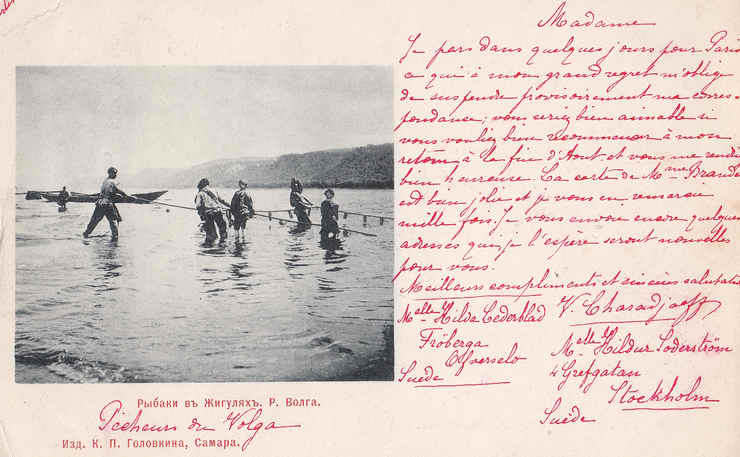 Madame
Je pars dans quelques jours pour Paris
ce qui à mon grand regret m'oblige
de suspendre provisoirement ma corres-
pondance; vous seriez bien aimable si
vous vouliez bien recommencer à mon
retour, à la fin d'Aout et vous me rendrez
bien heureuse. La carte de Mme Brande
est bien jolie et je vous en remercie
mille fois. Je vous envoie encore quelques
adresses qui je l'espère seront nouvelles
pour vous.
Meilleurs compliments et sincères salutations
V. Charadjaeff
Melle Hilda Cederblad
Fröberga
Suède
Melle Hildur Söderström
4 Grefgatan
Stockholm
Suède
Рыбаки въ Жигуляхъ. Р. Волга.
Pêcheurs du Volga
Изд. К. П. Головкина, Самара.